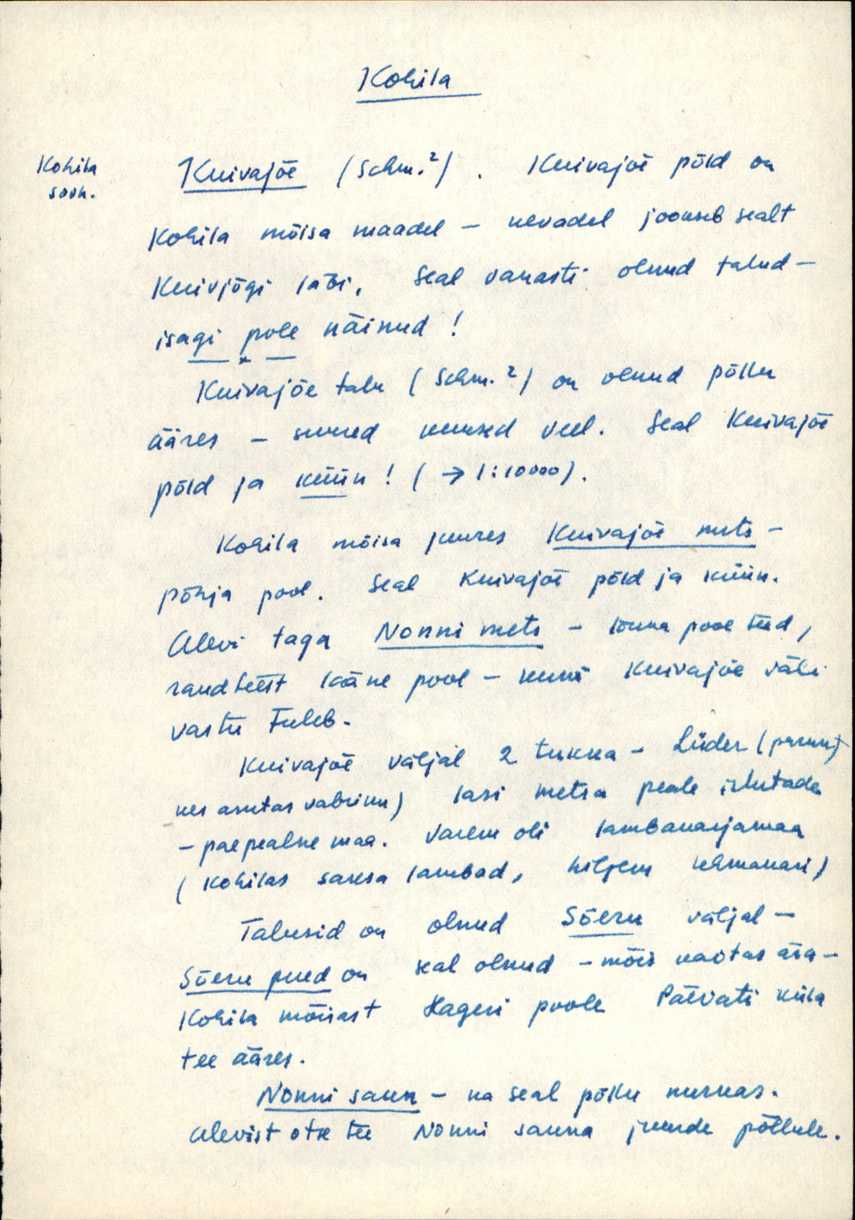 Kohila
Kohila
sovh.
Kuivajõe (Schm.²). Kuivajõe põld on
Kohila mõisa maadel – kevadel jookseb sealt
Kuivjõgi läbi. Seal vanasti olnud talud –
isagi pole näinud!
Kuivajõe talu (Schm.²) on olnud põllu
ääres – suured kuused veel. Seal Kuivajõe
põld ja küün! (→ 1:10000).
Kohila mõisa juures Kuivajõe mets –
põhja pool. Seal Kuivajõe põld ja küün.
Alevi taga Nonni mets – lõuna pool teed,
raudteest lääne pool – kuni Kuivajõe väli
vastu tuleb.
Kuivajõe väljal 2 tukka – Lüder (parun,
kes asutas vabriku) lasi metsa peale istutada
– paepealne maa. Varem oli lambakarjamaa
(Kohilas saksa lambad, hiljem lehmakari)
Talusid on olnud Sõeru väljal –
Sõeru pered on seal olnud – mõis kaotas ära –
Kohila mõisast Hageri poole Päevati küla
tee ääres.
Nonni saun – ka seal põllu nurkas.
Alevist otse tee Nonni sauna juurde põllule.